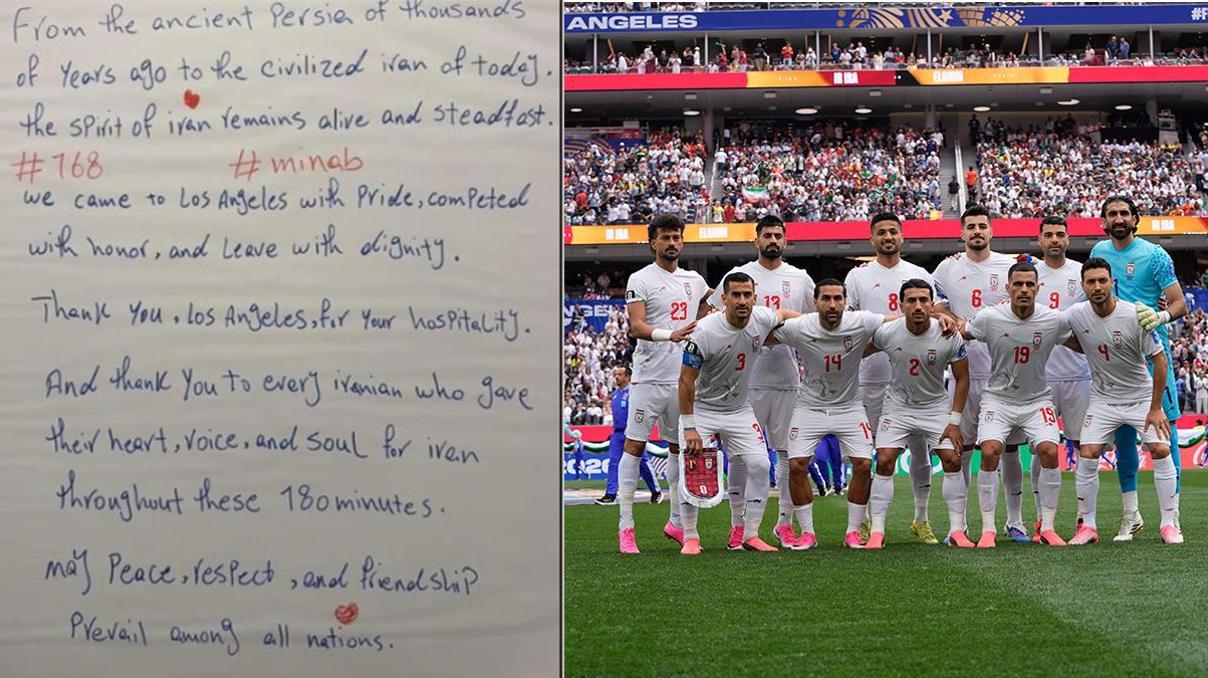 From the ancient Persia of thousands
of years ago to the civilized iran of today.
the spirit of iran remains alive and steadfast.
#168 #minab
we came to Los Angeles with Pride, competed
with honor, and Leave with dignity.
Thank you, Los Angeles, for your hospitality.
And thank you to every iranian who gave
their heart, voice, and soul for iran
throughout these 180 minutes.
may Peace, respect, and friendship
Prevail among all nations.
ANGELES
IR IRA
ELGIUM
IR IRA
ELGIUM
IR IRA
23
13
8
6
9
3
14
2
19
4
3
19